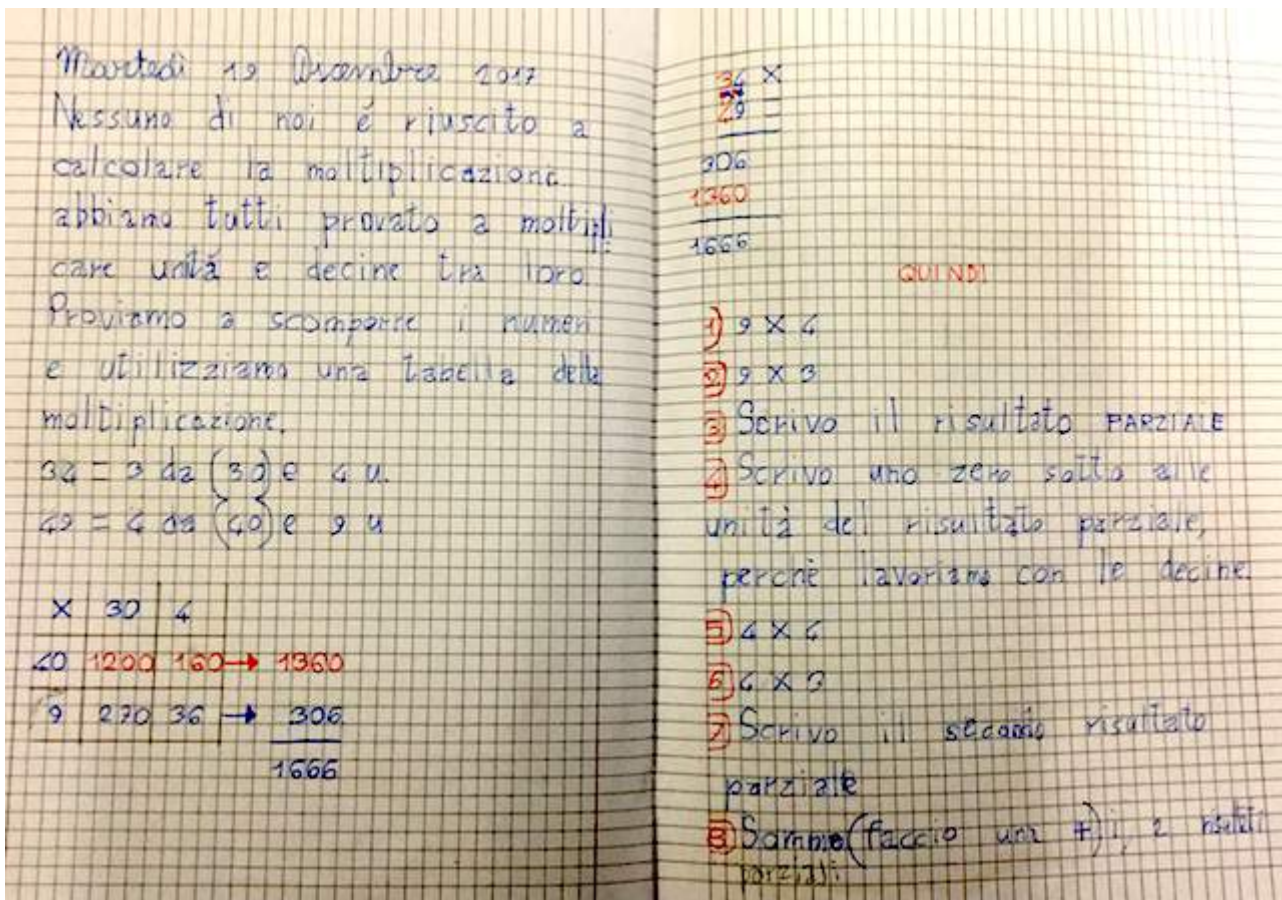 Martedì 19 Dicembre 2017
Nessuno di noi é riuscito a
calcolare la moltiplicazione.
abbiamo tutti provato a moltipli
care unitá e decine tra loro.
Proviamo a scomporre i numeri
e utilizziamo una tabella della
moltiplicazione.
34 = 3 da (30) e 4 u.
49 = 4 da (40) e 9 u
X 30 4
40 1200 160 → 1360
9 270 36 → 306
1666
34 X
49 =
306
1360
1666
QUINDI
1) 9 X 4
2) 9 X 3
3) Scrivo il risultato PARZIALE
4) Scrivo uno zero sotto alle
unità del risultato parziale,
perchè lavoriamo con le decine.
5) 4 X 4
6) 4 X 3
7) Scrivo il secondo risultato
parziale
8) Sommo (faccio una +) i 2 risultati
parziali